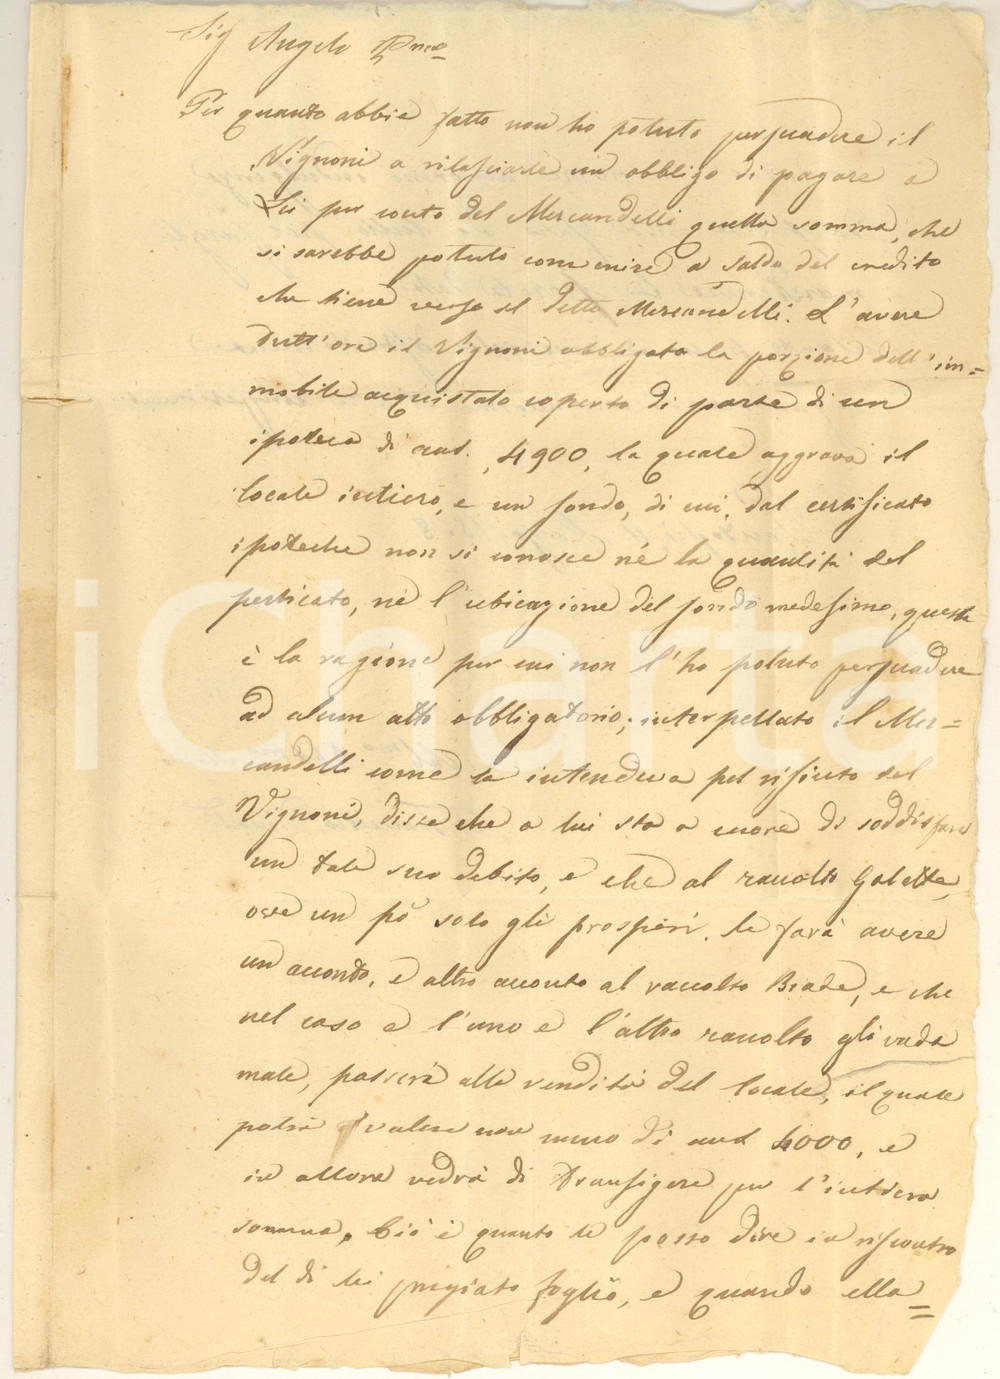 Sig Angelo Pne
Per quanto abbia fatto non ho potuto persuadere il
Vignoni a rilasciarle un obbligo di pagare a
Lei per conto del Mercandelli quella somma, che
si sarebbe potuto convenire a saldo del credito
che tiene verso il detto Mercandelli. L'avere
tutt'ora il Vignoni obbligata la porzione dell'im=
mobile acquistato coperto di parte di un
ipoteca di aust. 4900, la quale aggrava il
locale intiero, e un fondo, di cui, dal certificato
ipoteche non si conosce nè la quantità del
perticato, nè l'ubicazione del fondo medesimo, questa
è la ragione per cui non l'ho potuto persuadere
ad alcun atto obbligatorio; interpellato il Mer=
candelli come la intendeva pel rifiuto del
Vignoni, disse che a lui sta a cuore di soddisfare
un tale suo debito, e che al racolto Galette,
ove un pò solo gli prosperi, le farà avere
un aconto, e altro aconto al racolto Biade, e che
nel caso e l'uno e l'altro racolto gli vada
male, passerà alla vendita del locale, il quale
potrà valere non meno di aust 4000, e
in allora vedrà di transigere per l'intiera
somma. Ciò è quanto le posso dire in riscontro
del di lei pregiato foglio, e quando ella=
iCharta